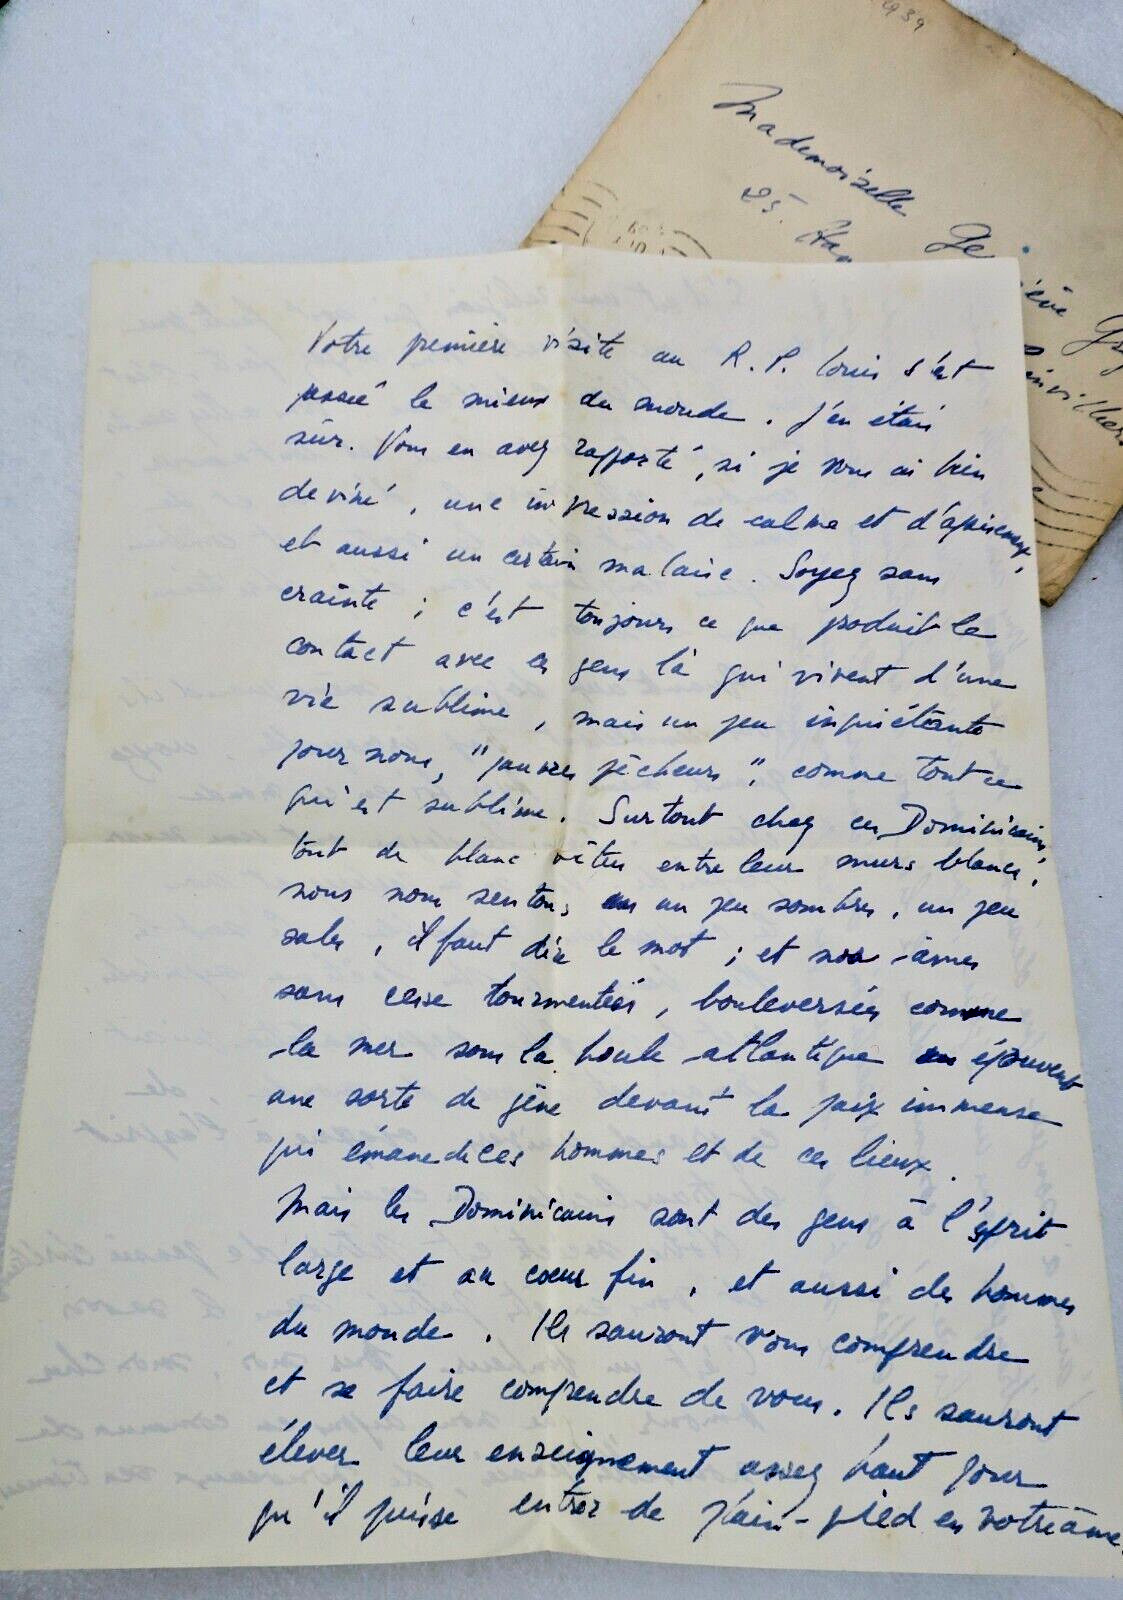 1939
Mademoiselle Ge
25.
Votre première visite au R. P. Louis s'est
passée le mieux du monde. J'en étais
sûr. Vous en avez rapporté, si je vous ai bien
deviné, une impression de calme et d'apaisement,
et aussi un certain malaise. Soyez sans
crainte ; c'est toujours ce que produit le
contact avec ces gens là qui vivent d'une
vie sublime, mais un peu inquiétante
pour nous, "pauvres pêcheurs", comme tout ce
qui est sublime. Surtout chez ces Dominicains,
tout de blanc vêtus entre leurs murs blancs,
nous nous sentons un peu sombres, un peu
sales, il faut dire le mot ; et nos âmes
sans cesse tourmentées, bouleversées comme
la mer sous la houle atlantique éprouvent
une sorte de gêne devant la paix immense
qui émane de ces hommes et de ces lieux.
Mais les Dominicains sont des gens à l'esprit
large et au cœur fin, et aussi des hommes
du monde. Ils sauront vous comprendre
et se faire comprendre de vous. Ils sauront
élever leur enseignement assez haut pour
qu'il puisse entrer de plain-pied en votre âme.